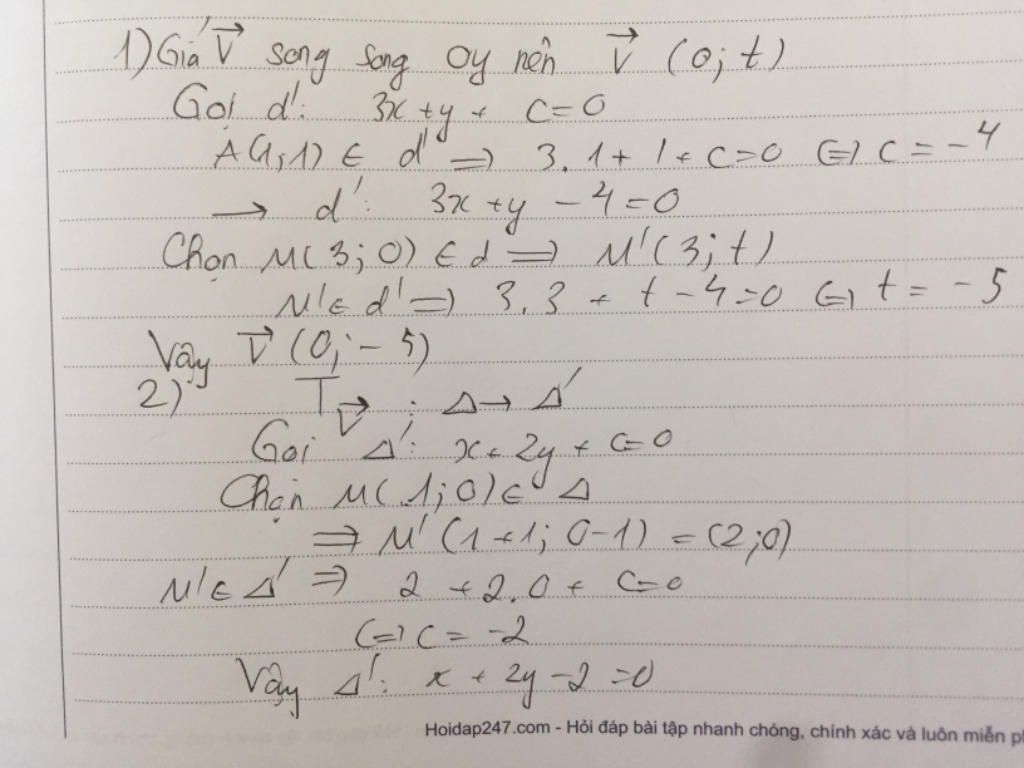 1) Giá v⃗ song song Oy nên v⃗ (0; t)
Gọi d': 3x + y + c = 0
A(1;1) ∈ d' => 3.1 + 1 + c = 0 <=> c = -4
→ d': 3x + y - 4 = 0
Chọn M(3; 0) ∈ d => M'(3; t)
M' ∈ d' => 3.3 + t - 4 = 0 <=> t = -5
Vậy v⃗ (0; -5)
2) T_v⃗ : Δ → Δ'
Gọi Δ': x + 2y + c = 0
Chọn M(1; 0) ∈ Δ
=> M' (1+1; 0-1) = (2; 0)
M' ∈ Δ' => 2 + 2.0 + c = 0
<=> c = -2
Vậy Δ': x + 2y - 2 = 0
Hoidap247.com - Hỏi đáp bài tập nhanh chóng, chính xác và luôn miễn